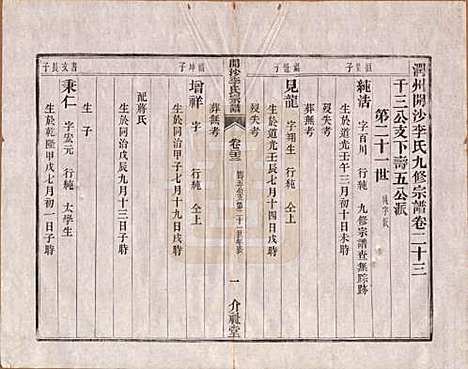 潤州開沙李氏九修宗譜卷二十三
千三公支下壽五公派
第二十一世
純字派
純洁 字百川 行純 九修宗譜查無踪跡
生於道光壬午三月初十日未時
歿失考
葬無考
見龍 字翔生 行純 仝上
生於道光壬辰七月十四日戌時
歿失考
葬無考
開沙李氏宗譜
卷二十三
一
介祉堂
增祥 字 行純 仝上
生於同治甲子七月十九日戌時
配蔣氏
生於同治戊辰九月十三日子時
生子
秉仁 字宏元 行純 大學生
生於乾隆甲戌七月初一日子時
書文長子